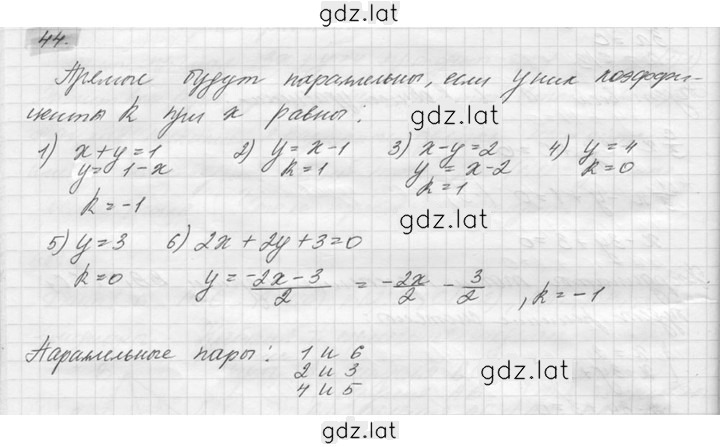 gdz.lat
44.
Прямые будут параллельны, если у них коэффи-
gdz.lat
циенты k при x равны:
1) x+y=1 2) y=x-1 3) x-y=2 4) y=4
y=1-x k=1 y=x-2 k=0
k=-1 k=1
gdz.lat
5) y=3 6) 2x+2y+3=0
k=0 y=\frac{-2x-3}{2} = -\frac{2x}{2} - \frac{3}{2}, k=-1
Параллельные пары: 1 и 6
2 и 3
gdz.lat
4 и 5
gdz.lat